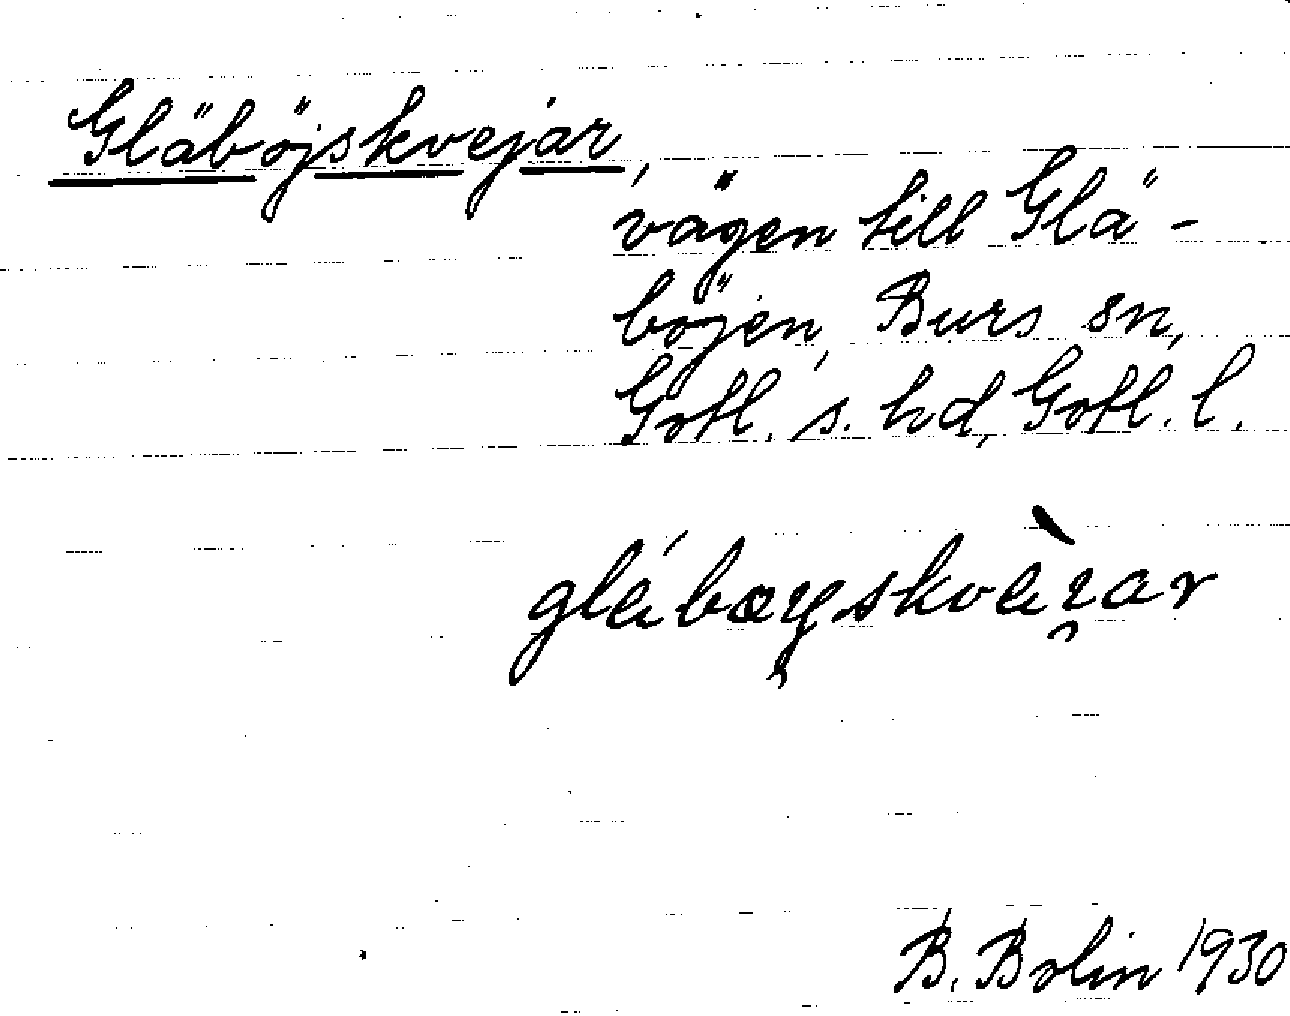 Gläböjskvejar,
vägen till Glä-
böjen, Burs sn,
Gotl. s. hd, Gotl. l.
B. Bolin 1930